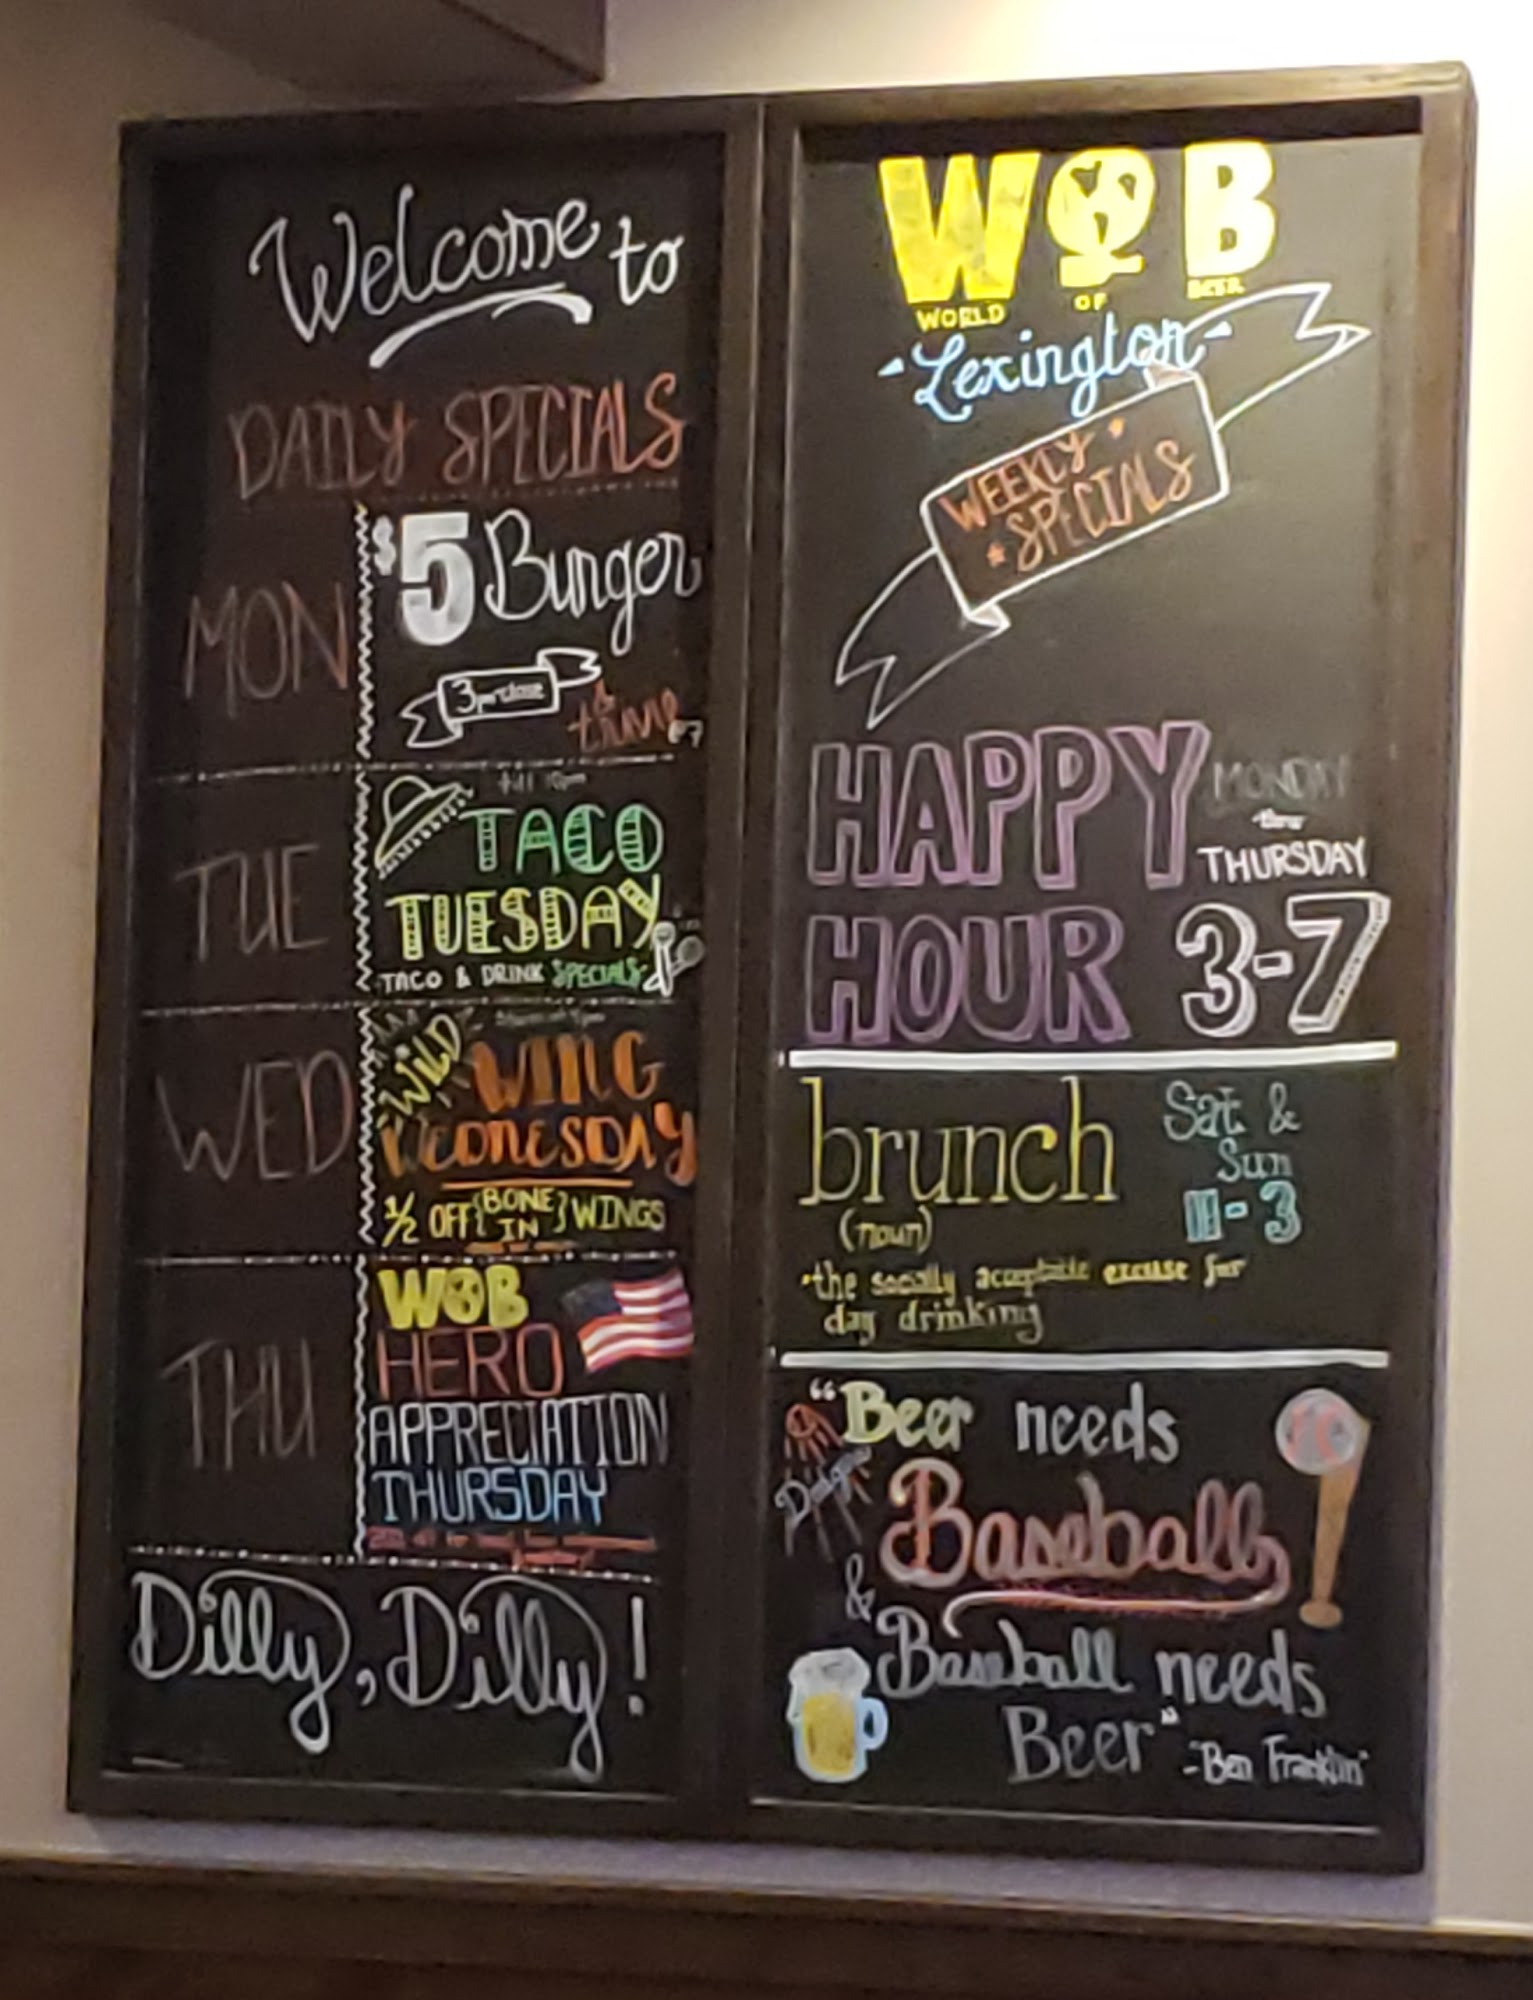 Welcome to
DAILY SPECIALS
MON
$5 Burger
trivia
TUE
TACO
TUESDAY
TACO & DRINK SPECIALS
WED
WILD WING
WEDNESDAY
1/2 OFF {BONE IN} WINGS
THU
WOB
HERO
APPRECIATION
THURSDAY
Dilly, Dilly!
WOB
WORLD OF BEER
-Lexington-
WEEKLY
SPECIALS
HAPPY
HOUR
MONDAY
thru
THURSDAY
3-7
brunch
(noun)
Sat &
Sun
11-3
the socially acceptable excuse for
day drinking
"Beer needs
Baseball
&
Baseball needs
Beer"
-Ben Franklin